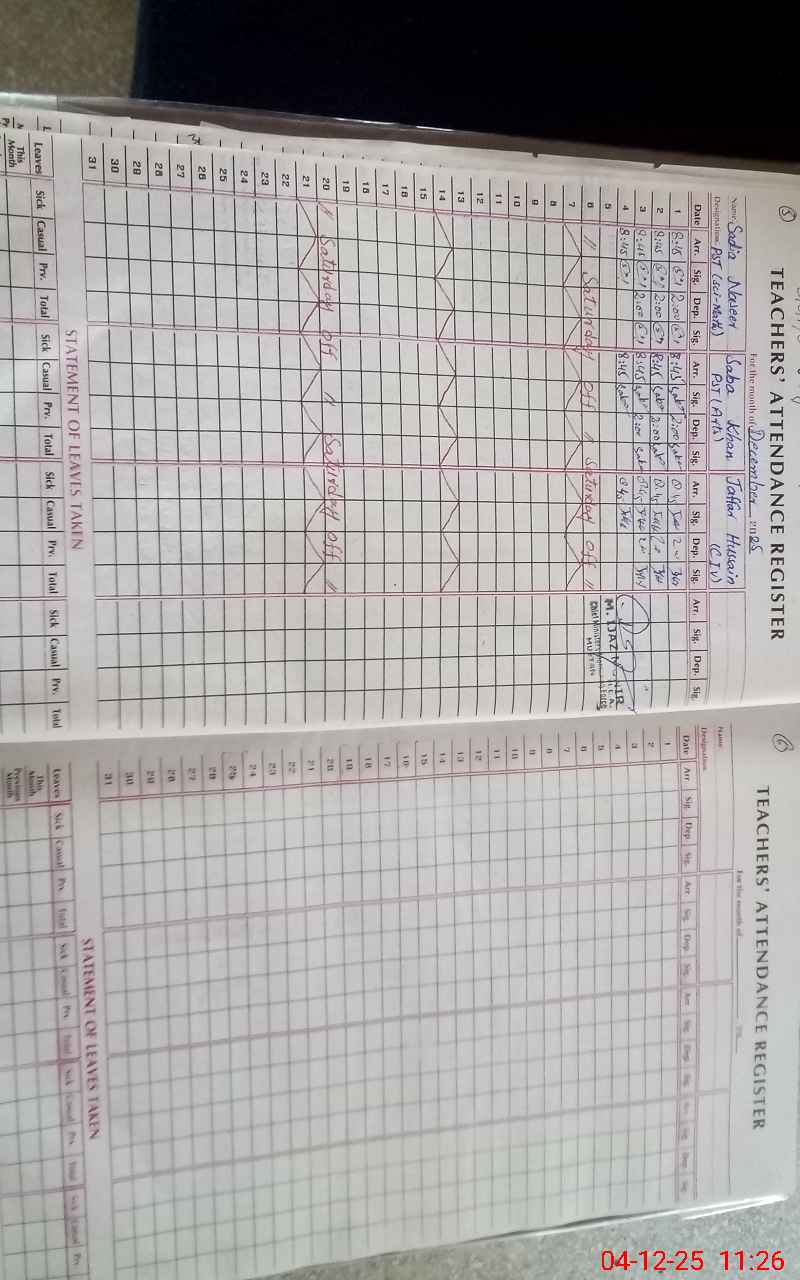 5
TEACHERS' ATTENDANCE REGISTER
For the month of December 2025
Name Sadia Naseer Saba Khan Jaffar Hussain
Designation PST (Sci-Math) PST (Arts) (C.I.V)
Date Arr. Sig. Dep. Sig. Arr. Sig. Dep. Sig. Arr. Sig. Dep. Sig. Arr. Sig. Dep. Sig.
1 8:45 2:00 8:45 2:00
2 8:45 2:00 8:45 2:00
3 8:45 2:00 8:45 2:00
4 8:45 8:45
5
6 " Saturday off " Saturday off "
7
8
9
10
11
12
13
14
15
16
17
18
19
20 " Saturday off " Saturday off "
21
22
23
24
25
26
27
28
29
30
31
M. IJAZ
Chief Minister's
MULTAN
STATEMENT OF LEAVES TAKEN
Leaves Sick Casual Prv. Total Sick Casual Prv. Total Sick Casual Prv. Total Sick Casual Prv. Total
This Month
6
TEACHERS' ATTENDANCE REGISTER
For the month of 20
Name
Designation
Date Arr. Sig. Dep. Sig. Arr. Sig. Dep. Sig. Arr. Sig. Dep. Sig. Arr. Sig. Dep. Sig.
1
2
3
4
5
6
7
8
9
10
11
12
13
14
15
16
17
18
19
20
21
22
23
24
25
26
27
28
29
30
31
STATEMENT OF LEAVES TAKEN
Leaves Sick Casual Prv. Total Sick Casual Prv. Total Sick Casual Prv. Total Sick Casual Prv.
This Month
Previous Month
04-12-25 11:26